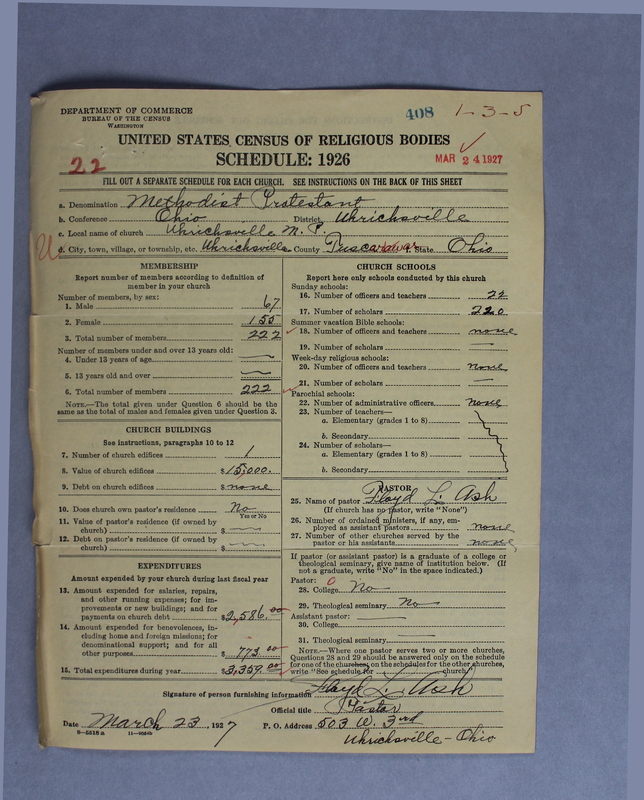 DEPARTMENT OF COMMERCE
BUREAU OF THE CENSUS
WASHINGTON
408 1-3-5
UNITED STATES CENSUS OF RELIGIOUS BODIES
22 SCHEDULE: 1926 MAR 24 1927
FILL OUT A SEPARATE SCHEDULE FOR EACH CHURCH. SEE INSTRUCTIONS ON THE BACK OF THIS SHEET
a. Denomination Methodist Protestant
b. Conference Ohio District Uhrichsville
c. Local name of church Uhrichsville M. P.
U d. City, town, village, or township, etc. Uhrichsville County Tuscarawas f. State Ohio
MEMBERSHIP
Report number of members according to definition of
member in your church
Number of members, by sex:
1. Male 67
2. Female 155
3. Total number of members 222
Number of members under and over 13 years old:
4. Under 13 years of age
5. 13 years old and over
6. Total number of members 222
NOTE.—The total given under Question 6 should be the
same as the total of males and females given under Question 3.
CHURCH BUILDINGS
See instructions, paragraphs 10 to 12
7. Number of church edifices 1
8. Value of church edifices $ 15,000.
9. Debt on church edifices $ none
10. Does church own pastor's residence? No
Yes or No
11. Value of pastor's residence (if owned by
church) $
12. Debt on pastor's residence (if owned by
church) $
EXPENDITURES
Amount expended by your church during last fiscal year
13. Amount expended for salaries, repairs,
and other running expenses; for im-
provements or new buildings; and for
payments on church debt $2,586.00
14. Amount expended for benevolences, in-
cluding home and foreign missions; for
denominational support; and for all
other purposes $ 773.00
15. Total expenditures during year $3,359.00
CHURCH SCHOOLS
Report here only schools conducted by this church
Sunday schools:
16. Number of officers and teachers 22
17. Number of scholars 220
Summer vacation Bible schools:
18. Number of officers and teachers none
19. Number of scholars —
Week-day religious schools:
20. Number of officers and teachers none
21. Number of scholars —
Parochial schools:
22. Number of administrative officers none
23. Number of teachers—
a. Elementary (grades 1 to 8)
b. Secondary
24. Number of scholars—
a. Elementary (grades 1 to 8)
b. Secondary
PASTOR
25. Name of pastor Floyd L. Ash
(If church has no pastor, write "None")
26. Number of ordained ministers, if any, em-
ployed as assistant pastors none
27. Number of other churches served by the
pastor or his assistants none
If pastor (or assistant pastor) is a graduate of a college or
theological seminary, give name of institution below. (If
not a graduate, write "No" in the space indicated.)
Pastor: 0
28. College No
29. Theological seminary No
Assistant pastor:
30. College
31. Theological seminary
NOTE.—Where one pastor serves two or more churches,
Questions 28 and 29 should be answered only on the schedule
for one of the churches, on the schedules for the other churches,
write "See schedule for church."
Signature of person furnishing information Floyd L. Ash
Official title Pastor
Date March 23, 1927 P. O. Address 503 W. 3rd
Uhrichsville - Ohio